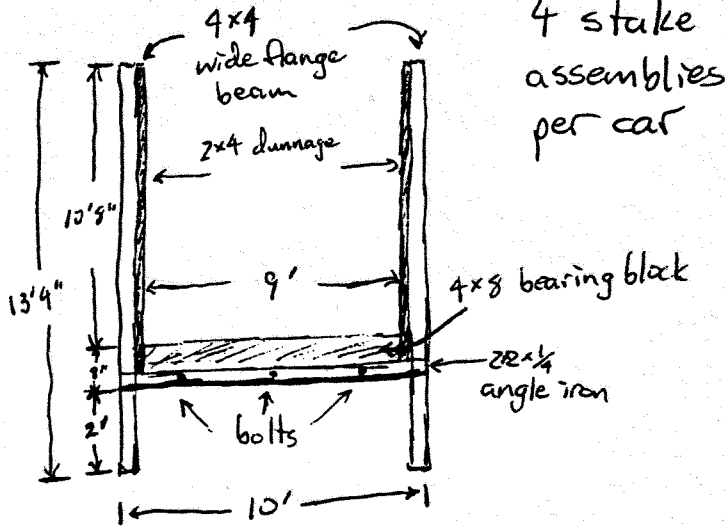 4x4
wide flange
beam
4 stake
assemblies
per car
2x4 dunnage
10'8"
9'
13'4"
4x8 bearing block
2x2x¼
angle iron
8"
2'
bolts
10'